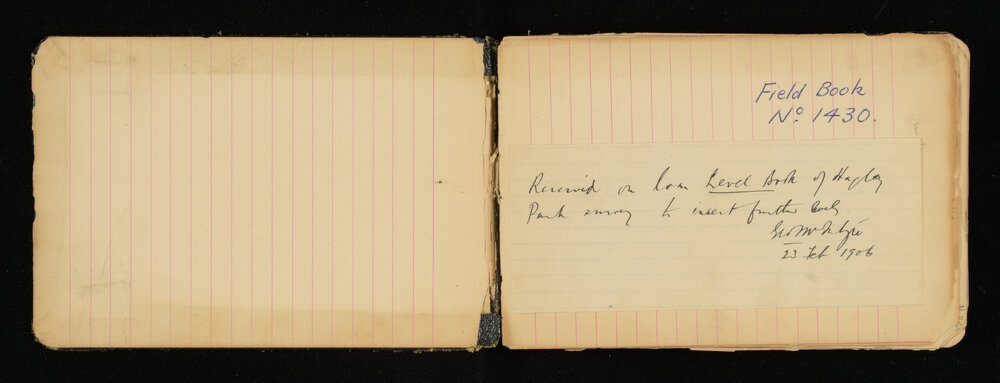 Field Book
No. 1430.
Received on loan Level Book of Hagley
Park survey to insert further levels.
Geo McIntyre
23 Feb 1906